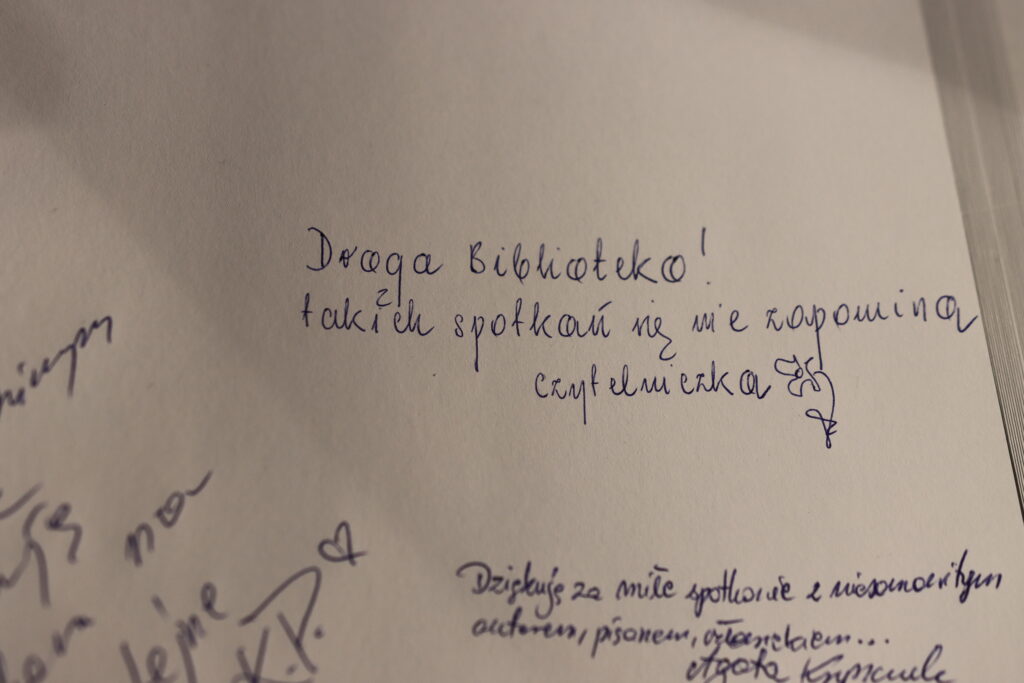 Droga Biblioteko!
takich spotkań się nie zapomina
czytelniczka
na
K.P.
Dziękuję za miłe spotkanie z niesamowitym
autorem, pisarzem, człowiekiem...
Agata